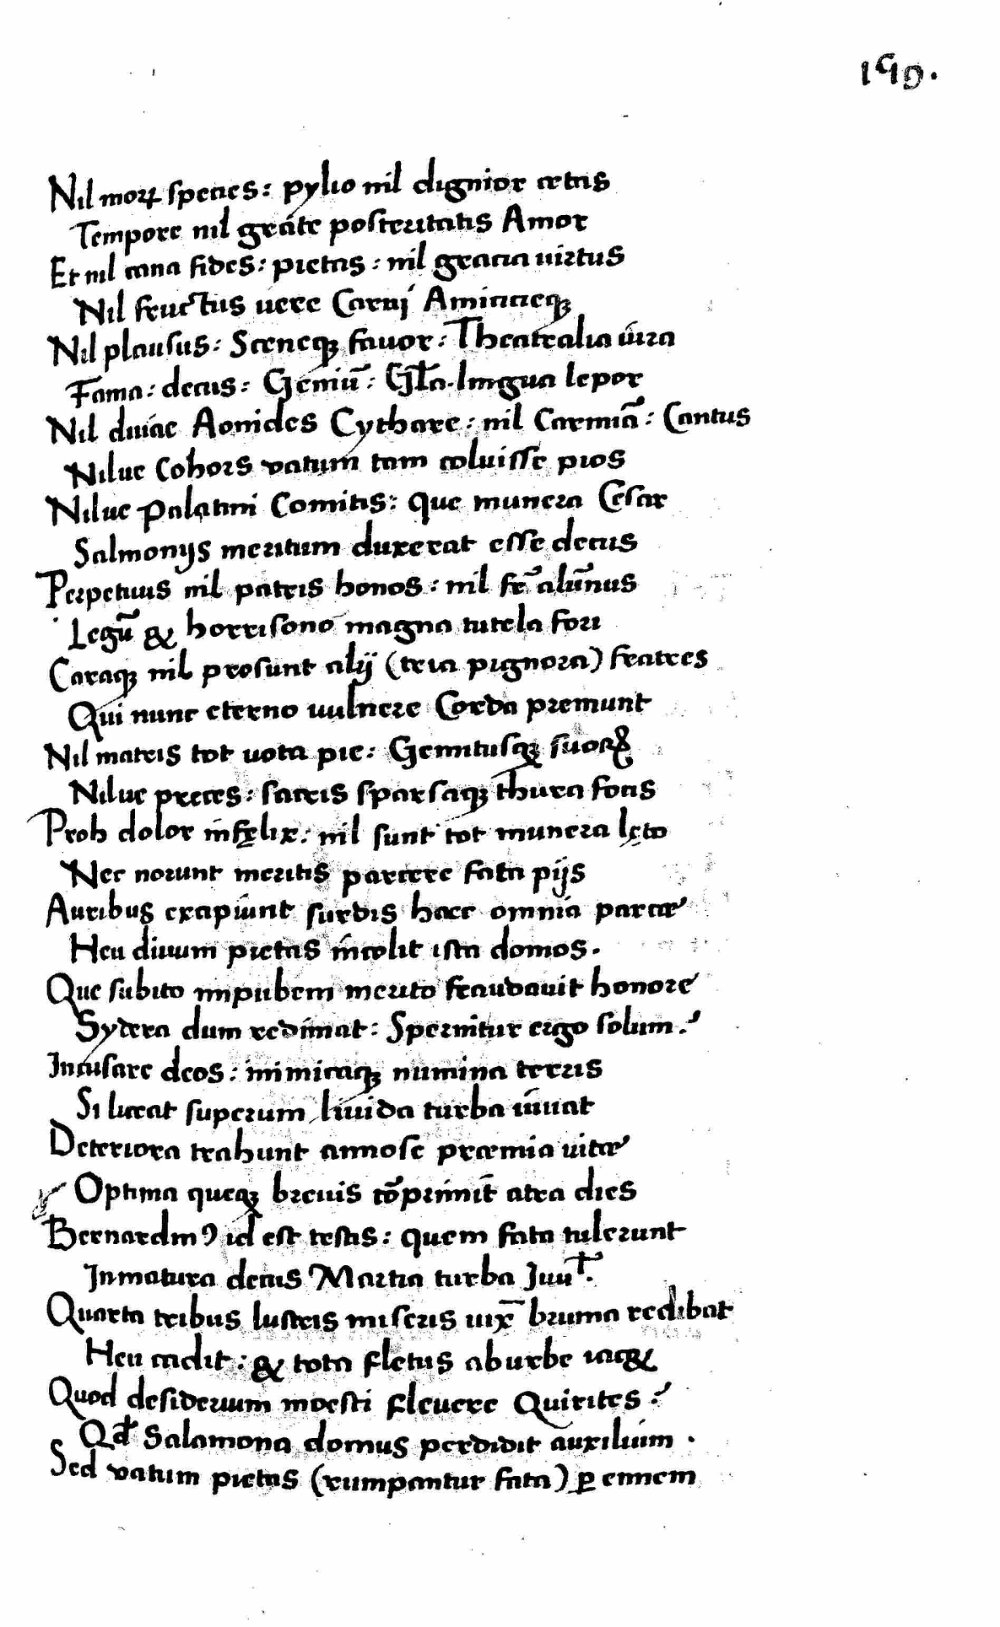 159.
Nil morꝝ species: pylio nil dignior ætas
Tempore nil grate posteritatis Amor
Et nil cana fides: pietas: nil gracia uirtus
Nil fructus uere Carnj Aminneqꝫ
Nil plausus: Sceneqꝫ fauor: Theatralia iura
Fama: decus: Geniū: Gl̄a. lingua lepor
Nil diuae Aonides Cythare: nil Carmīa: Cantus
Nilue Cohors vatum tam coluisse pios
Nilue Palatini Comitis: que munera Cesar
Salmonijs meritum duxerat esse decus
Perpetuus nil patris honos: nil fr̄ alūnus
Legū & horrisono magna tutela fori
Caraqꝫ nil prosunt alij (tria pignora) fratres
Qui nunc eterno uulnere Corda premunt
Nil matris tot uota pie: Gemitusqꝫ suoꝝ
Nilue preces: sacris sparsaqꝫ thura focis
Proh dolor infęlix: nil sunt tot munera lęto
Nec norunt meritis parcere fata pijs
Auribus excipiunt surdis haec omnia parcæ
Heu diuum pietas incolit ista domos.
Que subito impubem merito fraudauit honore
Sydera dum redimat: Spernitur ergo solum?
Incusare deos: inimicaqꝫ numina terris
Si liceat superum liuida turba iuuat
Deteriora trahunt annose præmia uitæ
Optima queqꝫ breuis cōprimit atra dies
Bernardinꝰ id est testis: quem fata tulerunt
Inmatura decus Martia turba Iuut̄.
Quarta tribus lustris miseris uix̄ bruma redibat
Heu cadit: & tota fletus ab urbe iac&
Quod desiderium moesti fleuere Quirites?
Qđ Salamona domus perdidit auxilium.
Sed vatum pietas (rumpantur fata) ꝑ ennem